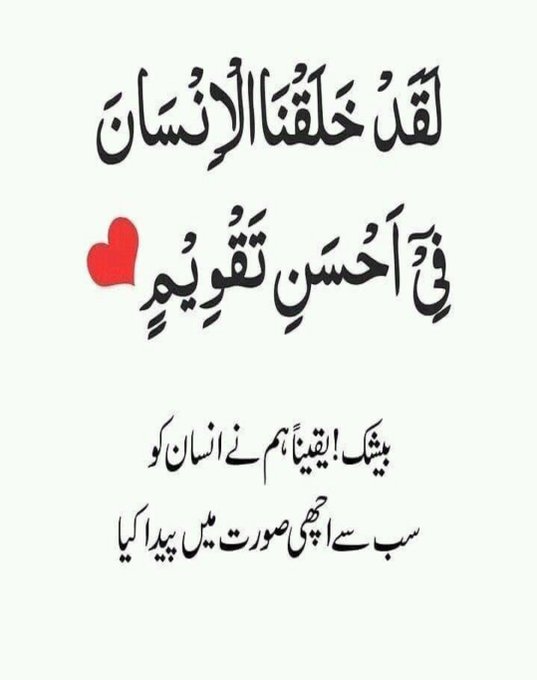 لَقَدْ خَلَقْنَا الْاِنْسَانَ
فِیْۤ اَحْسَنِ تَقْوِیْمٍ
بیشک! یقیناً ہم نے انسان کو
سب سے اچھی صورت میں پیدا کیا